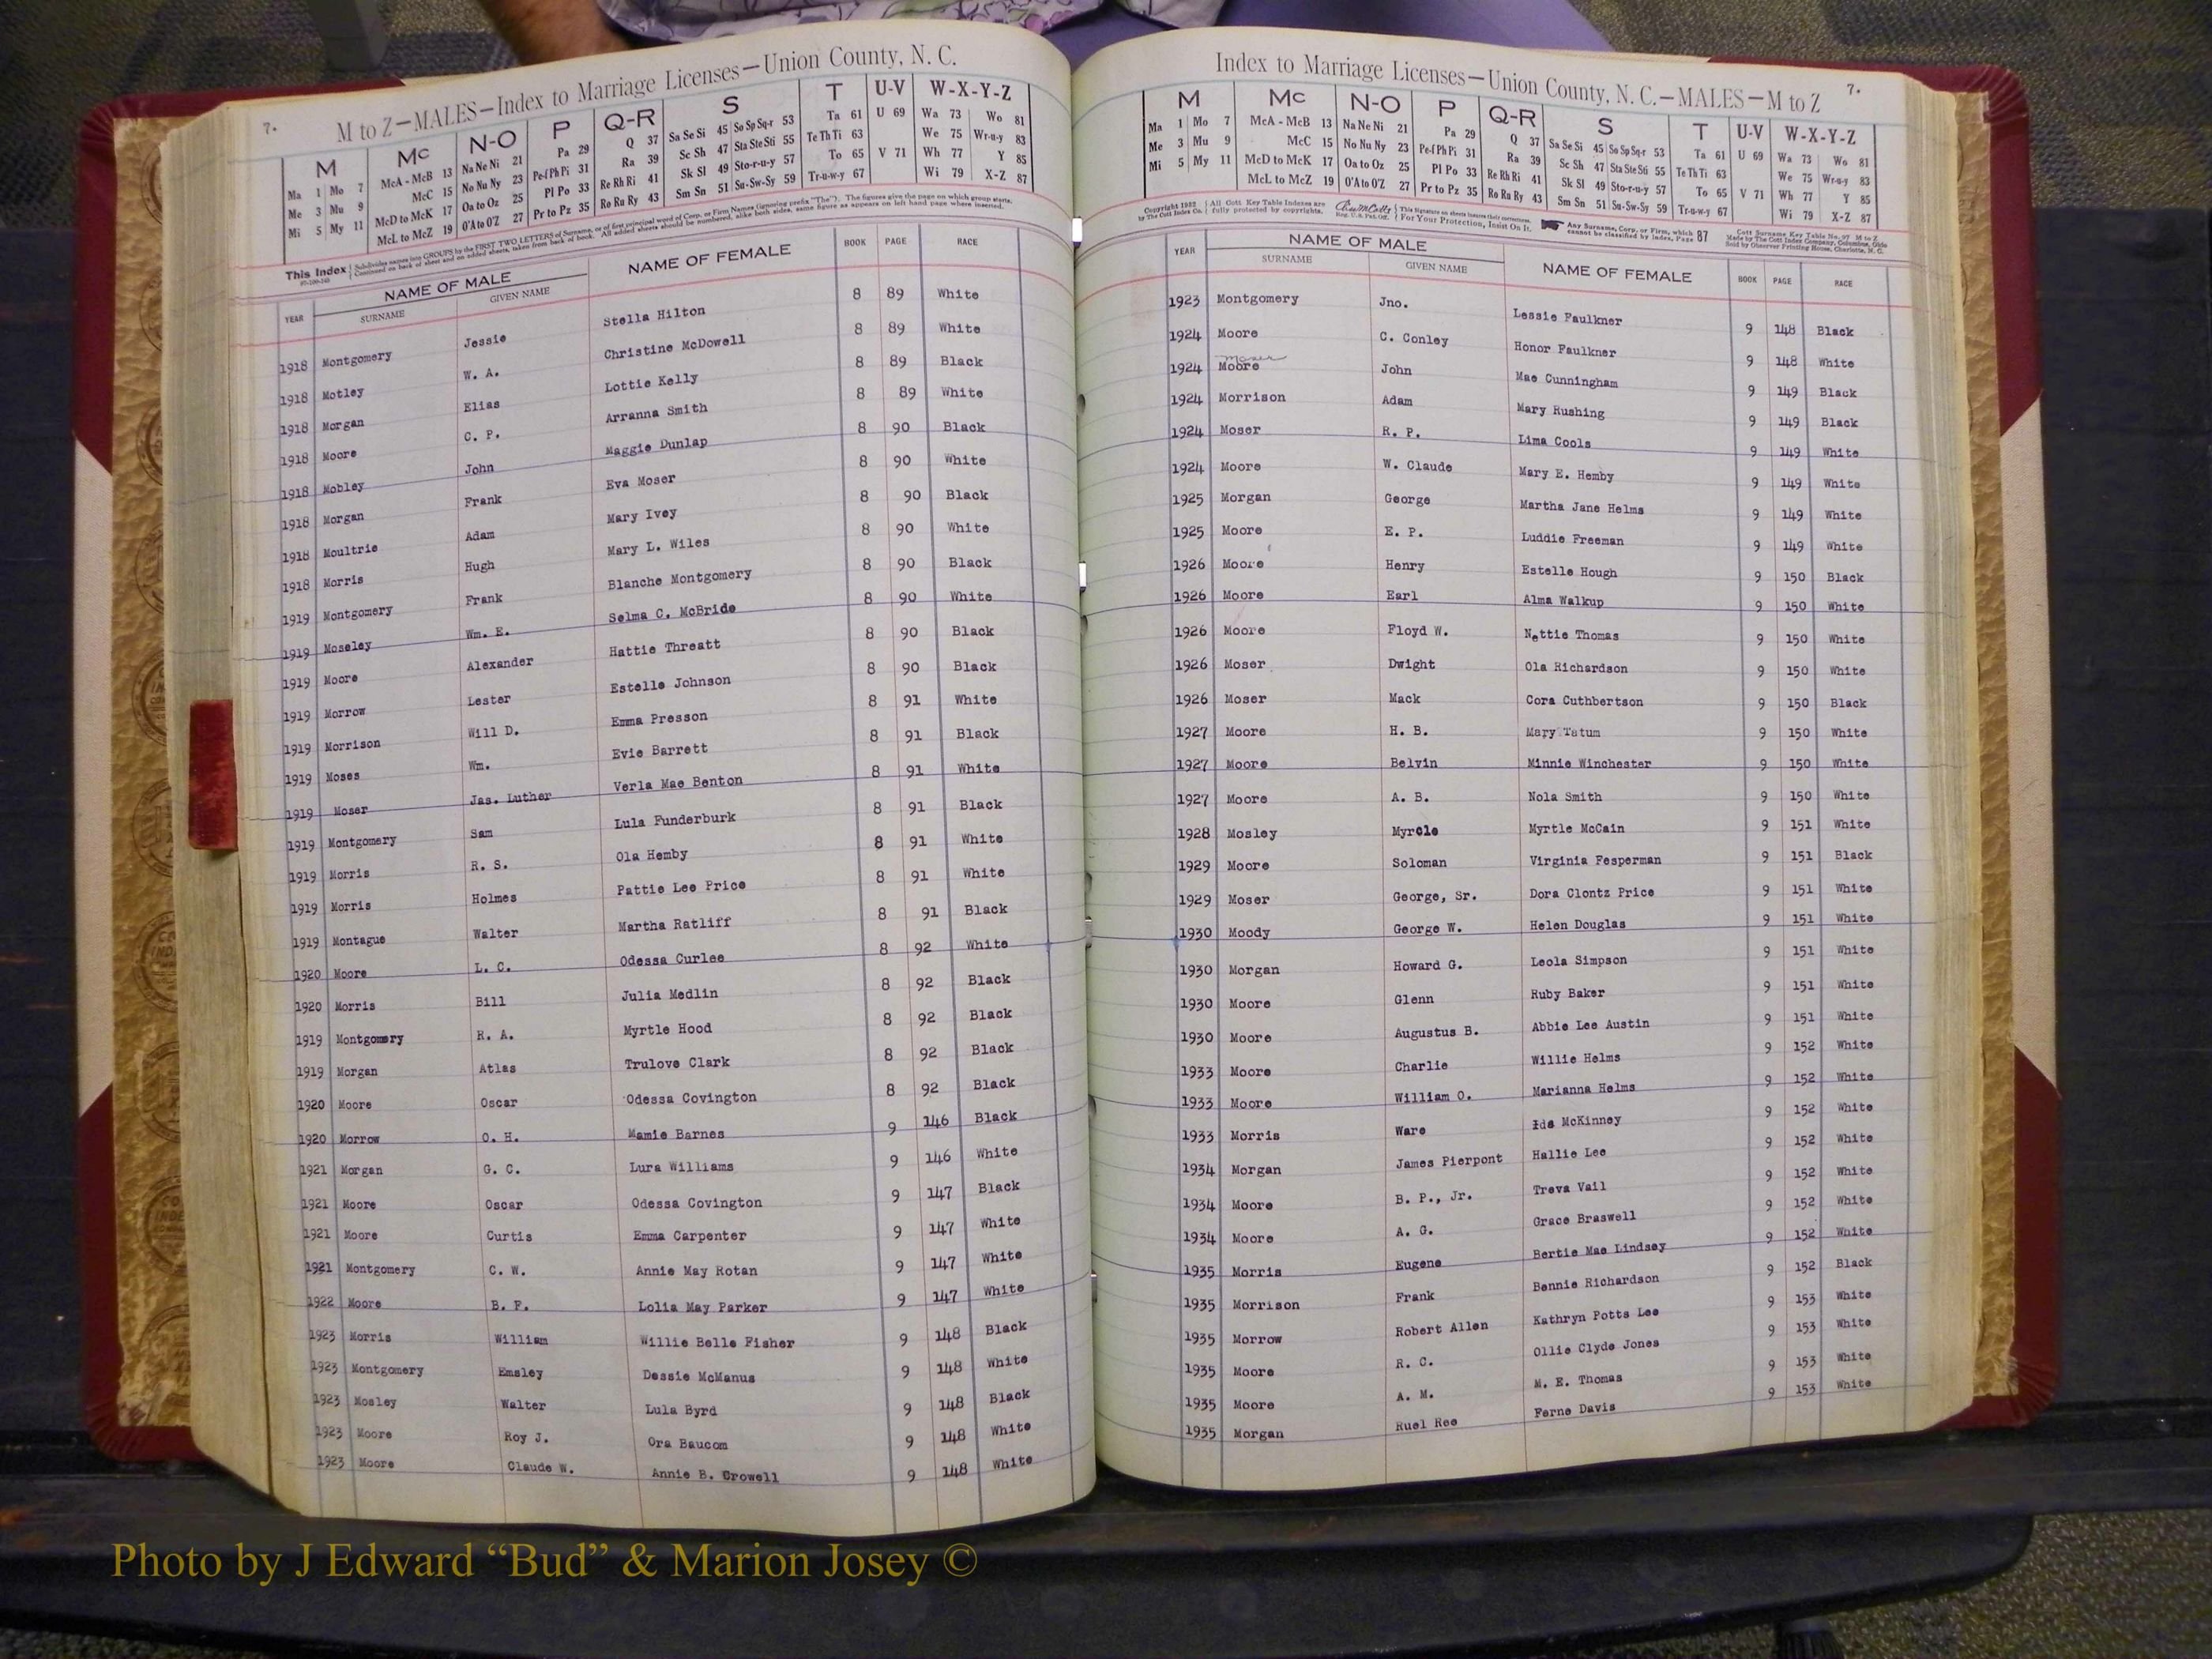 7.
M to Z—MALES—Index to Marriage Licenses—Union County, N. C.
M Mc N-O P Q-R S T U-V W-X-Y-Z
Ma 1 Mo 7 McA - McB 13 Na Ne Ni 21 Pa 29 Q 37 Sa Se Si 45 So Sp Sq-r 53 Ta 61 U 69 Wa 73 Wo 81
Me 3 Mu 9 McC 15 No Nu Ny 23 Pe-f Ph Pi 31 Ra 39 Sc Sh 47 Sta Ste Sti 55 Te Th Ti 63 We 75 Wr-u-y 83
Mi 5 My 11 McD to McK 17 Oa to Oz 25 Pl Po 33 Re Rh Ri 41 Sk Sl 49 Sto-r-u-y 57 To 65 V 71 Wh 77 Y 85
McL to McZ 19 O'A to O'Z 27 Pr to Pz 35 Ro Ru Ry 43 Sm Sn 51 Su-Sw-Sy 59 Tr-u-w-y 67 Wi 79 X-Z 87
This Index Subdivides names into GROUPS by the FIRST TWO LETTERS of Surname, or of first principal word of Corp. or Firm Names (ignoring prefix "The"). The figures give the page on which group starts.
Continued on back of sheet and on added sheets, taken from back of book. All added sheets should be numbered, alike both sides, same figure as appears on left hand page where inserted.
YEAR NAME OF MALE NAME OF FEMALE BOOK PAGE RACE
SURNAME GIVEN NAME
1918 Montgomery Jessie Stella Hilton 8 89 White
1918 Motley W. A. Christine McDowell 8 89 White
1918 Morgan Elias Lottie Kelly 8 89 Black
1918 Moore C. P. Arranna Smith 8 89 White
1918 Mobley John Maggie Dunlap 8 90 Black
1918 Morgan Frank Eva Moser 8 90 White
1918 Moultrie Adam Mary Ivey 8 90 Black
1918 Morris Hugh Mary L. Wiles 8 90 White
1919 Montgomery Frank Blanche Montgomery 8 90 Black
1919 Moseley Wm. E. Selma C. McBride 8 90 White
1919 Moore Alexander Hattie Threatt 8 90 Black
1919 Morrow Lester Estelle Johnson 8 90 Black
1919 Morrison Will D. Emma Presson 8 91 White
1919 Moses Wm. Evie Barrett 8 91 Black
1919 Moser Jas. Luther Verla Mae Benton 8 91 White
1919 Montgomery Sam Lula Funderburk 8 91 Black
1919 Morris R. S. Ola Hemby 8 91 White
1919 Morris Holmes Pattie Lee Price 8 91 White
1919 Montague Walter Martha Ratliff 8 91 Black
1920 Moore L. C. Odessa Curlee 8 92 White
1920 Morris Bill Julia Medlin 8 92 Black
1919 Montgomery R. A. Myrtle Hood 8 92 Black
1919 Morgan Atlas Trulove Clark 8 92 Black
1920 Moore Oscar Odessa Covington 8 92 Black
1920 Morrow O. H. Mamie Barnes 9 146 Black
1921 Morgan G. C. Lura Williams 9 146 White
1921 Moore Oscar Odessa Covington 9 147 Black
1921 Moore Curtis Emma Carpenter 9 147 White
1921 Montgomery C. W. Annie May Rotan 9 147 White
1922 Moore B. F. Lolia May Parker 9 147 White
1923 Morris William Willie Belle Fisher 9 148 Black
1923 Montgomery Emsley Dessie McManus 9 148 White
1923 Mosley Walter Lula Byrd 9 148 Black
1923 Moore Roy J. Ora Baucom 9 148 White
1923 Moore Claude W. Annie B. Crowell 9 148 White
Index to Marriage Licenses—Union County, N. C.—MALES—M to Z
7.
M Mc N-O P Q-R S T U-V W-X-Y-Z
Ma 1 Mo 7 McA - McB 13 Na Ne Ni 21 Pa 29 Q 37 Sa Se Si 45 So Sp Sq-r 53 Ta 61 U 69 Wa 73 Wo 81
Me 3 Mu 9 McC 15 No Nu Ny 23 Pe-f Ph Pi 31 Ra 39 Sc Sh 47 Sta Ste Sti 55 Te Th Ti 63 We 75 Wr-u-y 83
Mi 5 My 11 McD to McK 17 Oa to Oz 25 Pl Po 33 Re Rh Ri 41 Sk Sl 49 Sto-r-u-y 57 To 65 V 71 Wh 77 Y 85
McL to McZ 19 O'A to O'Z 27 Pr to Pz 35 Ro Ru Ry 43 Sm Sn 51 Su-Sw-Sy 59 Tr-u-w-y 67 Wi 79 X-Z 87
Copyright 1932 All Cott Key Table Indexes are This Signature on sheets insures their correctness. Any Surname, Corp. or Firm, which Cott Surname Key Table No. 97 M to Z
by The Cott Index Co. fully protected by copyrights. Reg. U.S. Pat. Off. For Your Protection, Insist On It. cannot be classified by Index, Page 87 Made by The Cott Index Company, Columbus, Ohio
Sold by Observer Printing House, Charlotte, N. C.
YEAR NAME OF MALE NAME OF FEMALE BOOK PAGE RACE
SURNAME GIVEN NAME
1923 Montgomery Jno. Lessie Faulkner 9 148 Black
1924 Moore C. Conley Honor Faulkner 9 148 White
Moser
1924 Moore John Mae Cunningham 9 149 Black
1924 Morrison Adam Mary Rushing 9 149 Black
1924 Moser R. P. Lima Cools 9 149 White
1924 Moore W. Claude Mary E. Hemby 9 149 White
1925 Morgan George Martha Jane Helms 9 149 White
1925 Moore E. P. Luddie Freeman 9 149 White
1926 Moore Henry Estelle Hough 9 150 Black
1926 Moore Earl Alma Walkup 9 150 White
1926 Moore Floyd W. Nettie Thomas 9 150 White
1926 Moser Dwight Ola Richardson 9 150 White
1926 Moser Mack Cora Cuthbertson 9 150 Black
1927 Moore H. B. Mary Tatum 9 150 White
1927 Moore Belvin Minnie Winchester 9 150 White
1927 Moore A. B. Nola Smith 9 150 White
1928 Mosley Myrcle Myrtle McCain 9 151 White
1929 Moore Soloman Virginia Fesperman 9 151 Black
1929 Moser George, Sr. Dora Clontz Price 9 151 White
1930 Moody George W. Helen Douglas 9 151 White
1930 Morgan Howard G. Leola Simpson 9 151 White
1930 Moore Glenn Ruby Baker 9 151 White
1930 Moore Augustus B. Abbie Lee Austin 9 151 White
1933 Moore Charlie Willie Helms 9 152 White
1933 Moore William O. Marianna Helms 9 152 White
1933 Morris Ware Ida McKinney 9 152 White
1934 Morgan James Pierpont Hallie Lee 9 152 White
1934 Moore B. P., Jr. Treva Vail 9 152 White
1934 Moore A. G. Grace Braswell 9 152 White
1935 Morris Eugene Bertie Mae Lindsey 9 152 White
1935 Morrison Frank Bennie Richardson 9 152 Black
1935 Morrow Robert Allen Kathryn Potts Lee 9 153 White
1935 Moore R. C. Ollie Clyde Jones 9 153 White
1935 Moore A. M. M. E. Thomas 9 153 White
1935 Morgan Ruel Ree Ferne Davis 9 153 White
Photo by J Edward “Bud” & Marion Josey ©